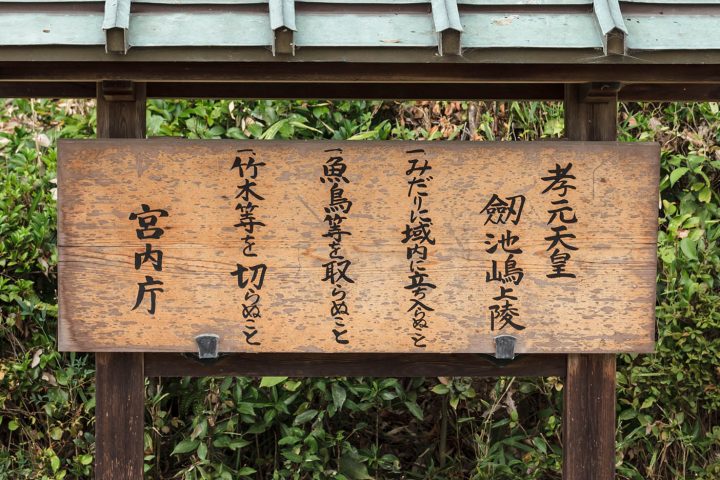 孝元天皇
劔池嶋上陵
一みだりに域内に立ち入らぬこと
一魚鳥等を取らぬこと
一竹木等を切らぬこと
宮内庁